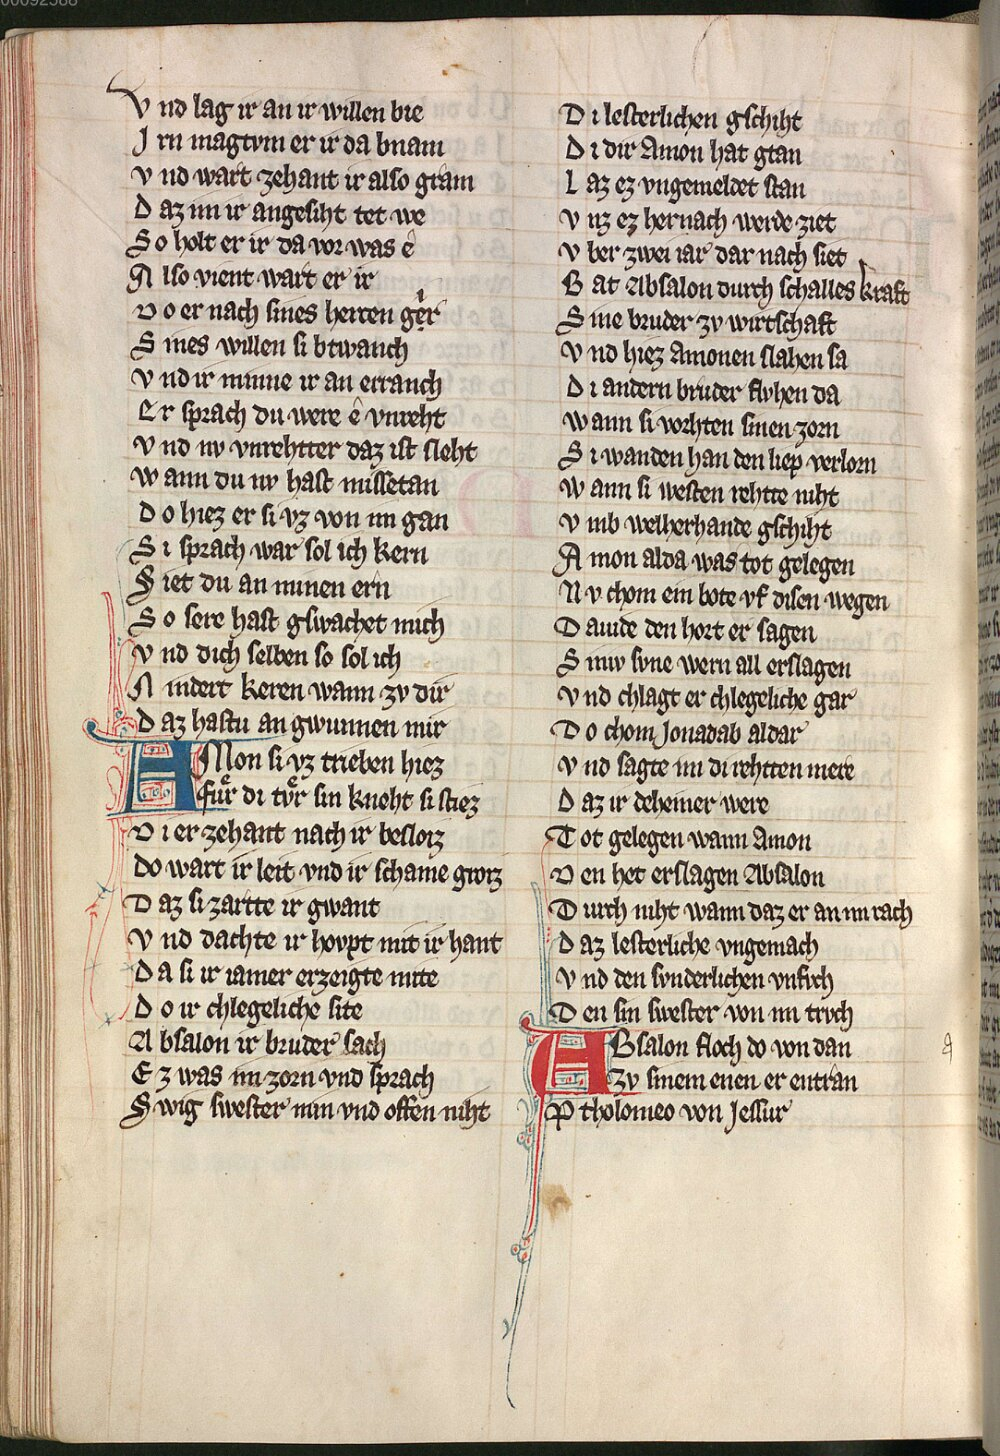 00092588
Vnd lag ir an ir willen bie
Irn magtvm er ir da bnam
Vnd wart zehant ir also gram
Daz im ir angesiht tet we
So holt er ir da vor was ê
Also vient wart er ir
Do er nach sines herren ger
Sines willen si btwanch
Vnd ir minne ir an erranch
Er sprach du were ê vnreht
Vnd nv vnrehtter daz ist sleht
Wann du nv hast missetan
Do hiez er si vz von im gan
Si sprach war sol ich kern
Siet du an minen ern
So sere hast gswachet mich
Vnd dich selben so sol ich
Nindert keren wann zv dir
Daz hastu an gwunnen mir
AMon si vz trieben hiez
für di tv̊r sin kneht si stiez
Di er zehant nach ir besloz
do wart ir leit vnd ir schame groz
Daz si zartte ir gwant
Vnd dachte ir hovpt mit ir hant
Da si ir iamer erzeigte mite
Do ir chlegeliche site
Absalon ir bruder sach
Ez was im zorn vnd sprach
Swig swester min vnd offen niht
Di lesterlichen gschiht
Di dir Amon hat gtan
Laz ez vngemeldet stan
Vnz ez hernach werde ziet
Vber zwei iar dar nach siet
Bat Absalon durch schalles kraft
Sine bruder zv wirtschaft
Vnd hiez Amonen slahen sa
Di andern bruder flvhen da
Wann si vorhten sinen zorn
Si wanden han den liep verlorn
Wann si westen rehtte niht
Vmb welherhande gschiht
Amon alda was tot gelegen
Nv chom ein bote vf disen wegen
Dauide den hort er sagen
Sinw svne wern all erslagen
Vnd chlagt er chlegeliche gar
Do chom Jonadab aldar
Vnd sagte im di rehtten mere
Daz ir deheiner were
Tot gelegen wann Amon
Den het erslagen Absalon
Durch niht wann daz er an im rach
Daz lesterliche vngemach
Vnd den svnderlichen vnfvch
Den sin swester von im trvch
ABsalon floch do von dan
Zv sinem enen er entran
Ptholomeo von Jessur